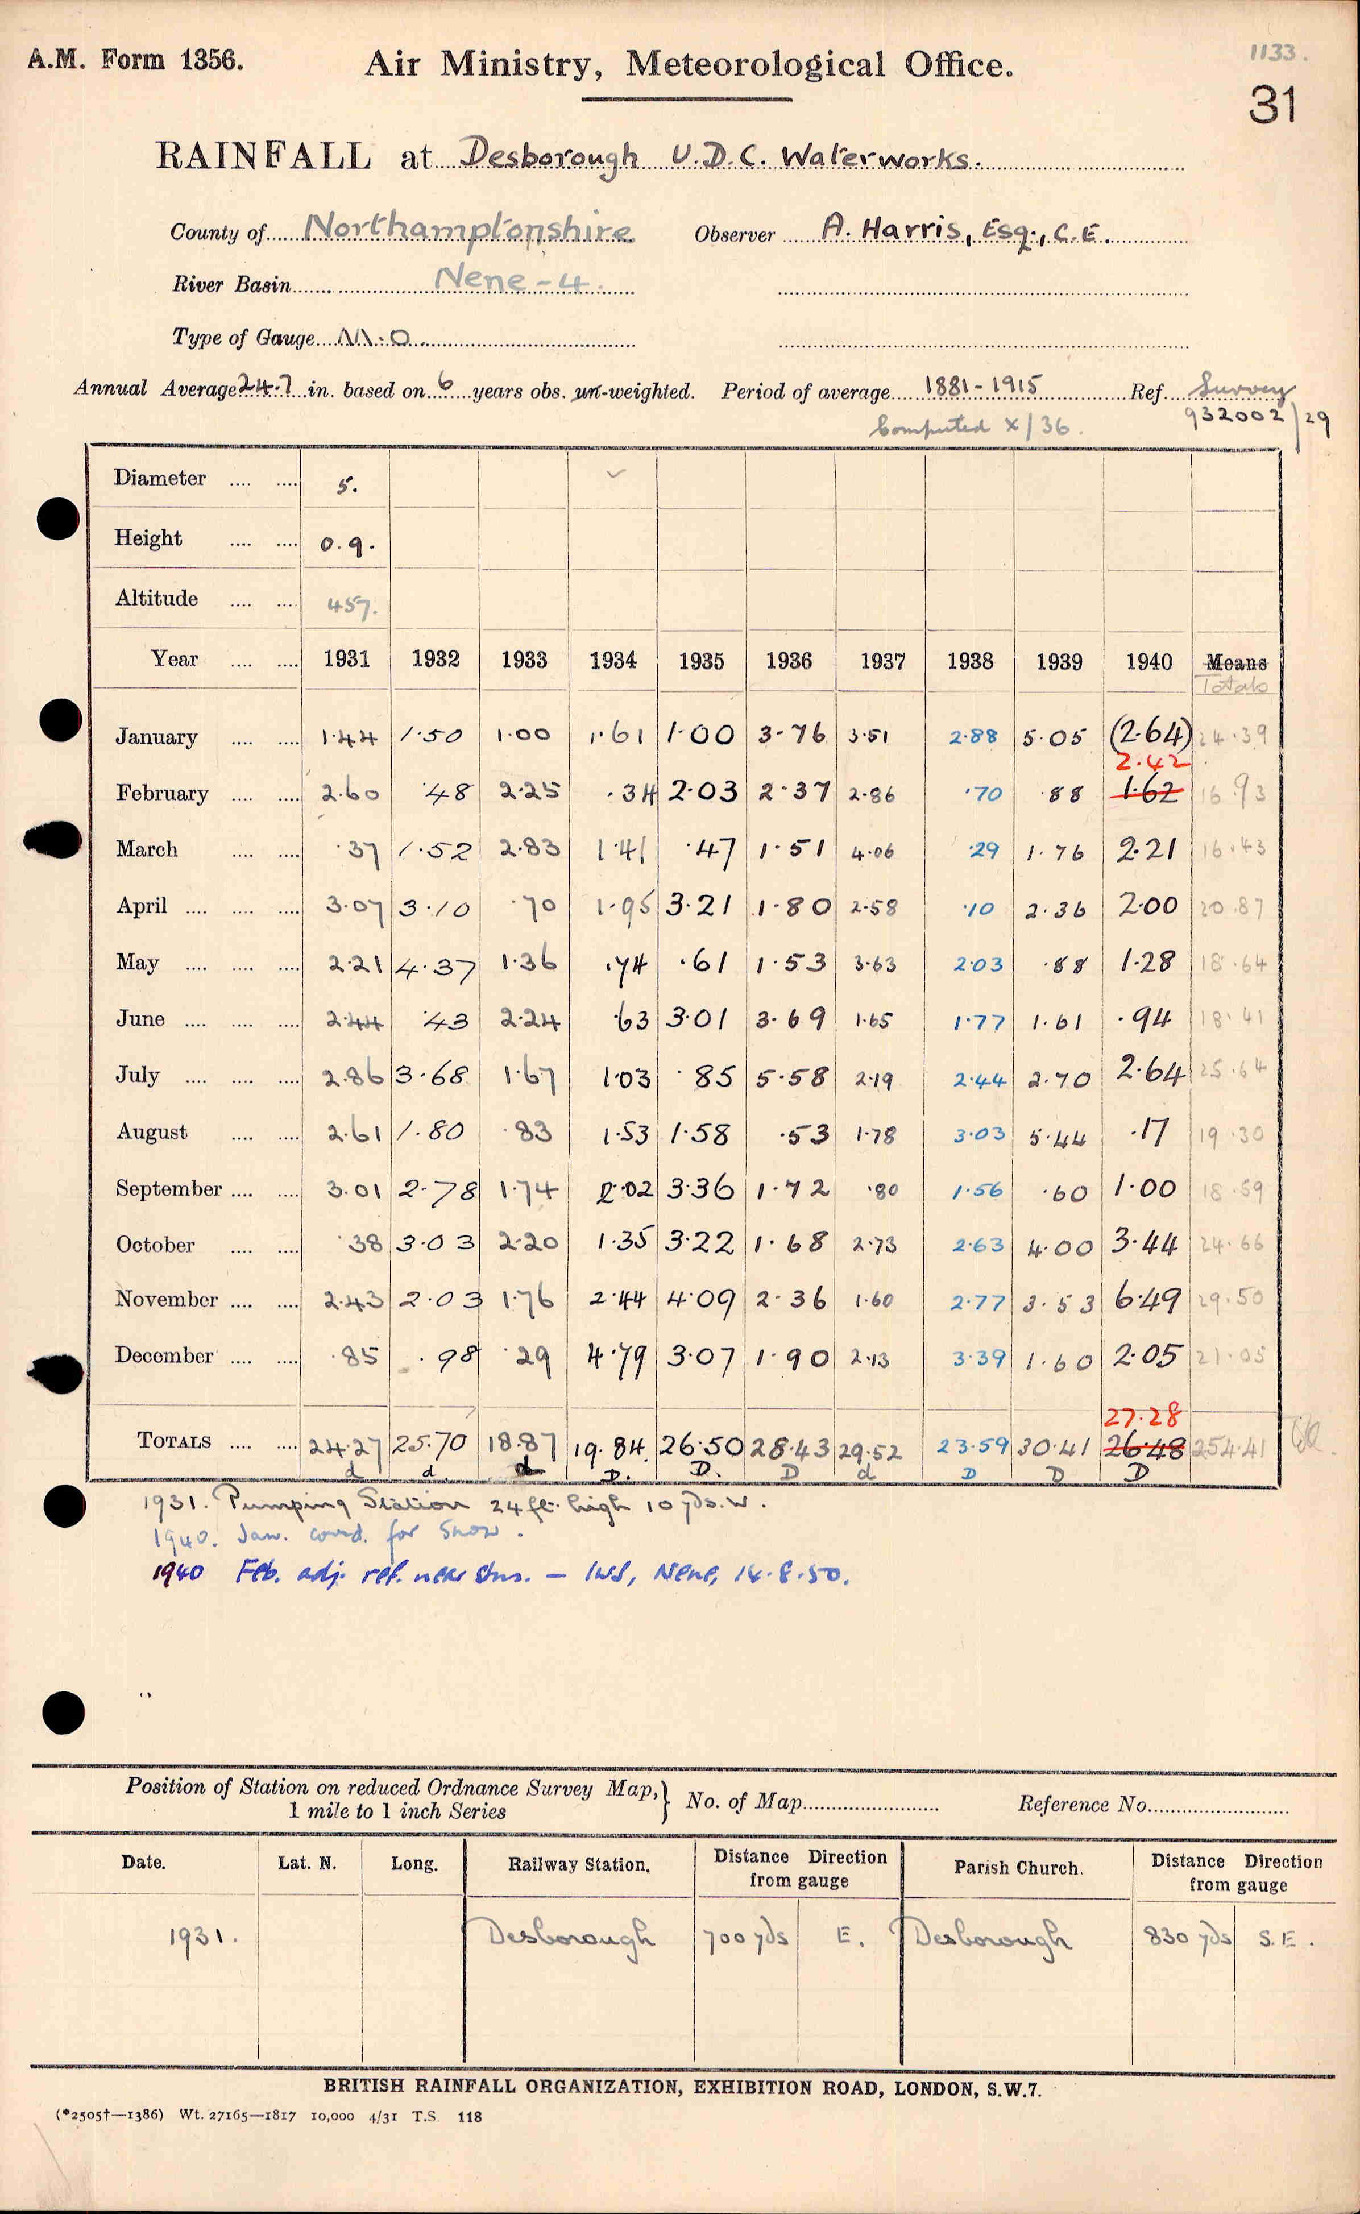 A.M. Form 1356.
Air Ministry, Meteorological Office.
1133.
31
RAINFALL at Desborough U.D.C. Waterworks.
County of Northamptonshire Observer A. Harris, Esq., C.E.
River Basin Nene-4.
Type of Gauge M.O.
Annual Average 24.7 in. based on 6 years obs. un-weighted. Period of average 1881-1915 Ref. Survey
Computed X/36. 932002/29
Diameter .... .... 5.
Height .... .... 0.9.
Altitude .... .... 457.
Year .... .... 1931 1932 1933 1934 1935 1936 1937 1938 1939 1940 Means
Totals
January .... .... 1.44 1.50 1.00 1.61 1.00 3.76 3.51 2.88 5.05 (2.64) 24.39
2.42
February .... .... 2.60 .48 2.25 .34 2.03 2.37 2.86 .70 .88 1.62 16.93
March .... .... .37 1.52 2.83 1.41 .47 1.51 4.06 .29 1.76 2.21 16.43
April .... .... .... 3.07 3.10 .70 1.95 3.21 1.80 2.58 .10 2.36 2.00 20.87
May .... .... .... 2.21 4.37 1.36 .74 .61 1.53 3.63 2.03 .88 1.28 18.64
June .... .... .... 2.44 .43 2.24 .63 3.01 3.69 1.65 1.77 1.61 .94 18.41
July .... .... .... 2.86 3.68 1.67 1.03 .85 5.58 2.19 2.44 2.70 2.64 25.64
August .... .... 2.61 1.80 .83 1.53 1.58 .53 1.78 3.03 5.44 .17 19.30
September .... .... 3.01 2.78 1.74 2.02 3.36 1.72 .80 1.56 .60 1.00 18.59
October .... .... .38 3.03 2.20 1.35 3.22 1.68 2.73 2.63 4.00 3.44 24.66
November .... .... 2.43 2.03 1.76 2.44 4.09 2.36 1.60 2.77 3.53 6.49 29.50
December .... .... .85 .98 .29 4.79 3.07 1.90 2.13 3.39 1.60 2.05 21.05
27.28
TOTALS .... .... 24.27 25.70 18.87 19.84 26.50 28.43 29.52 23.59 30.41 26.48 254.41
d d. d D. D. D d D D D
1931. Pumping Station 24 ft. high 10 yds. W.
1940. Jan. corrd. for Snow.
1940 Feb. adj. ref. near stns. – Nene, 14.8.50.
Position of Station on reduced Ordnance Survey Map,} No. of Map Reference No.
1 mile to 1 inch Series
Date. Lat. N. Long. Railway Station. Distance from gauge Direction Parish Church. Distance from gauge Direction
1931. Desborough 700 yds E. Desborough 830 yds S.E.
BRITISH RAINFALL ORGANIZATION, EXHIBITION ROAD, LONDON, S.W.7.
(*2505†—1386) Wt. 27165—1817 10,000 4/31 T.S. 118